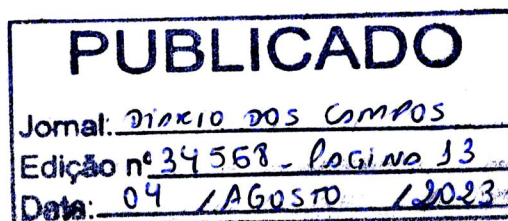 PUBLICADO
Jornal: DIARIO DOS CAMPOS
Edição nº 34568 - PAGINA 13
Data: 04 / AGOSTO / 2023